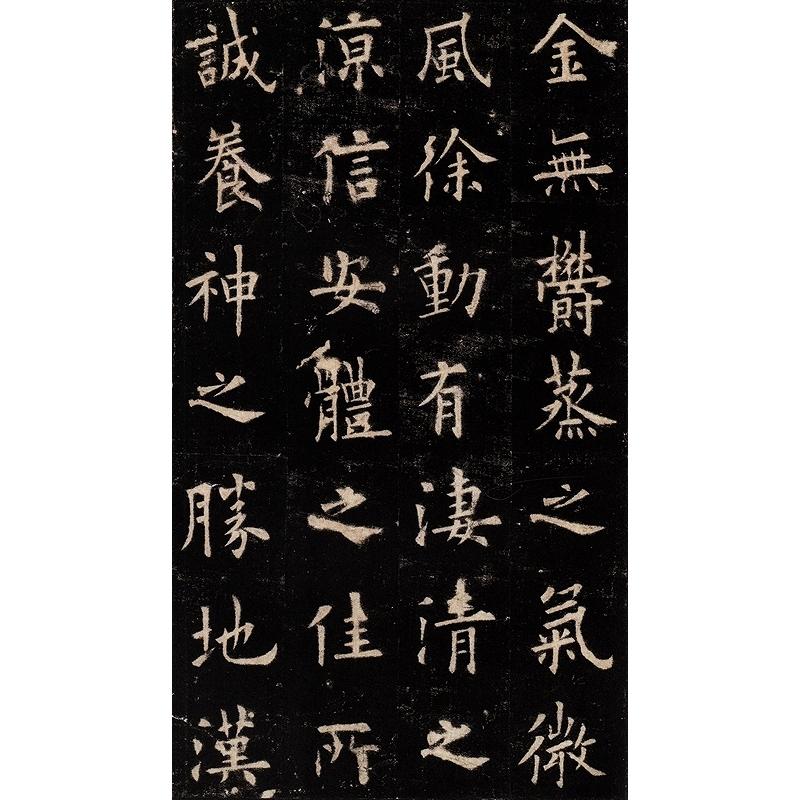 金無欝蒸之氣微
風徐動有淒清之
凉信安體之佳所
誠養神之勝地漢